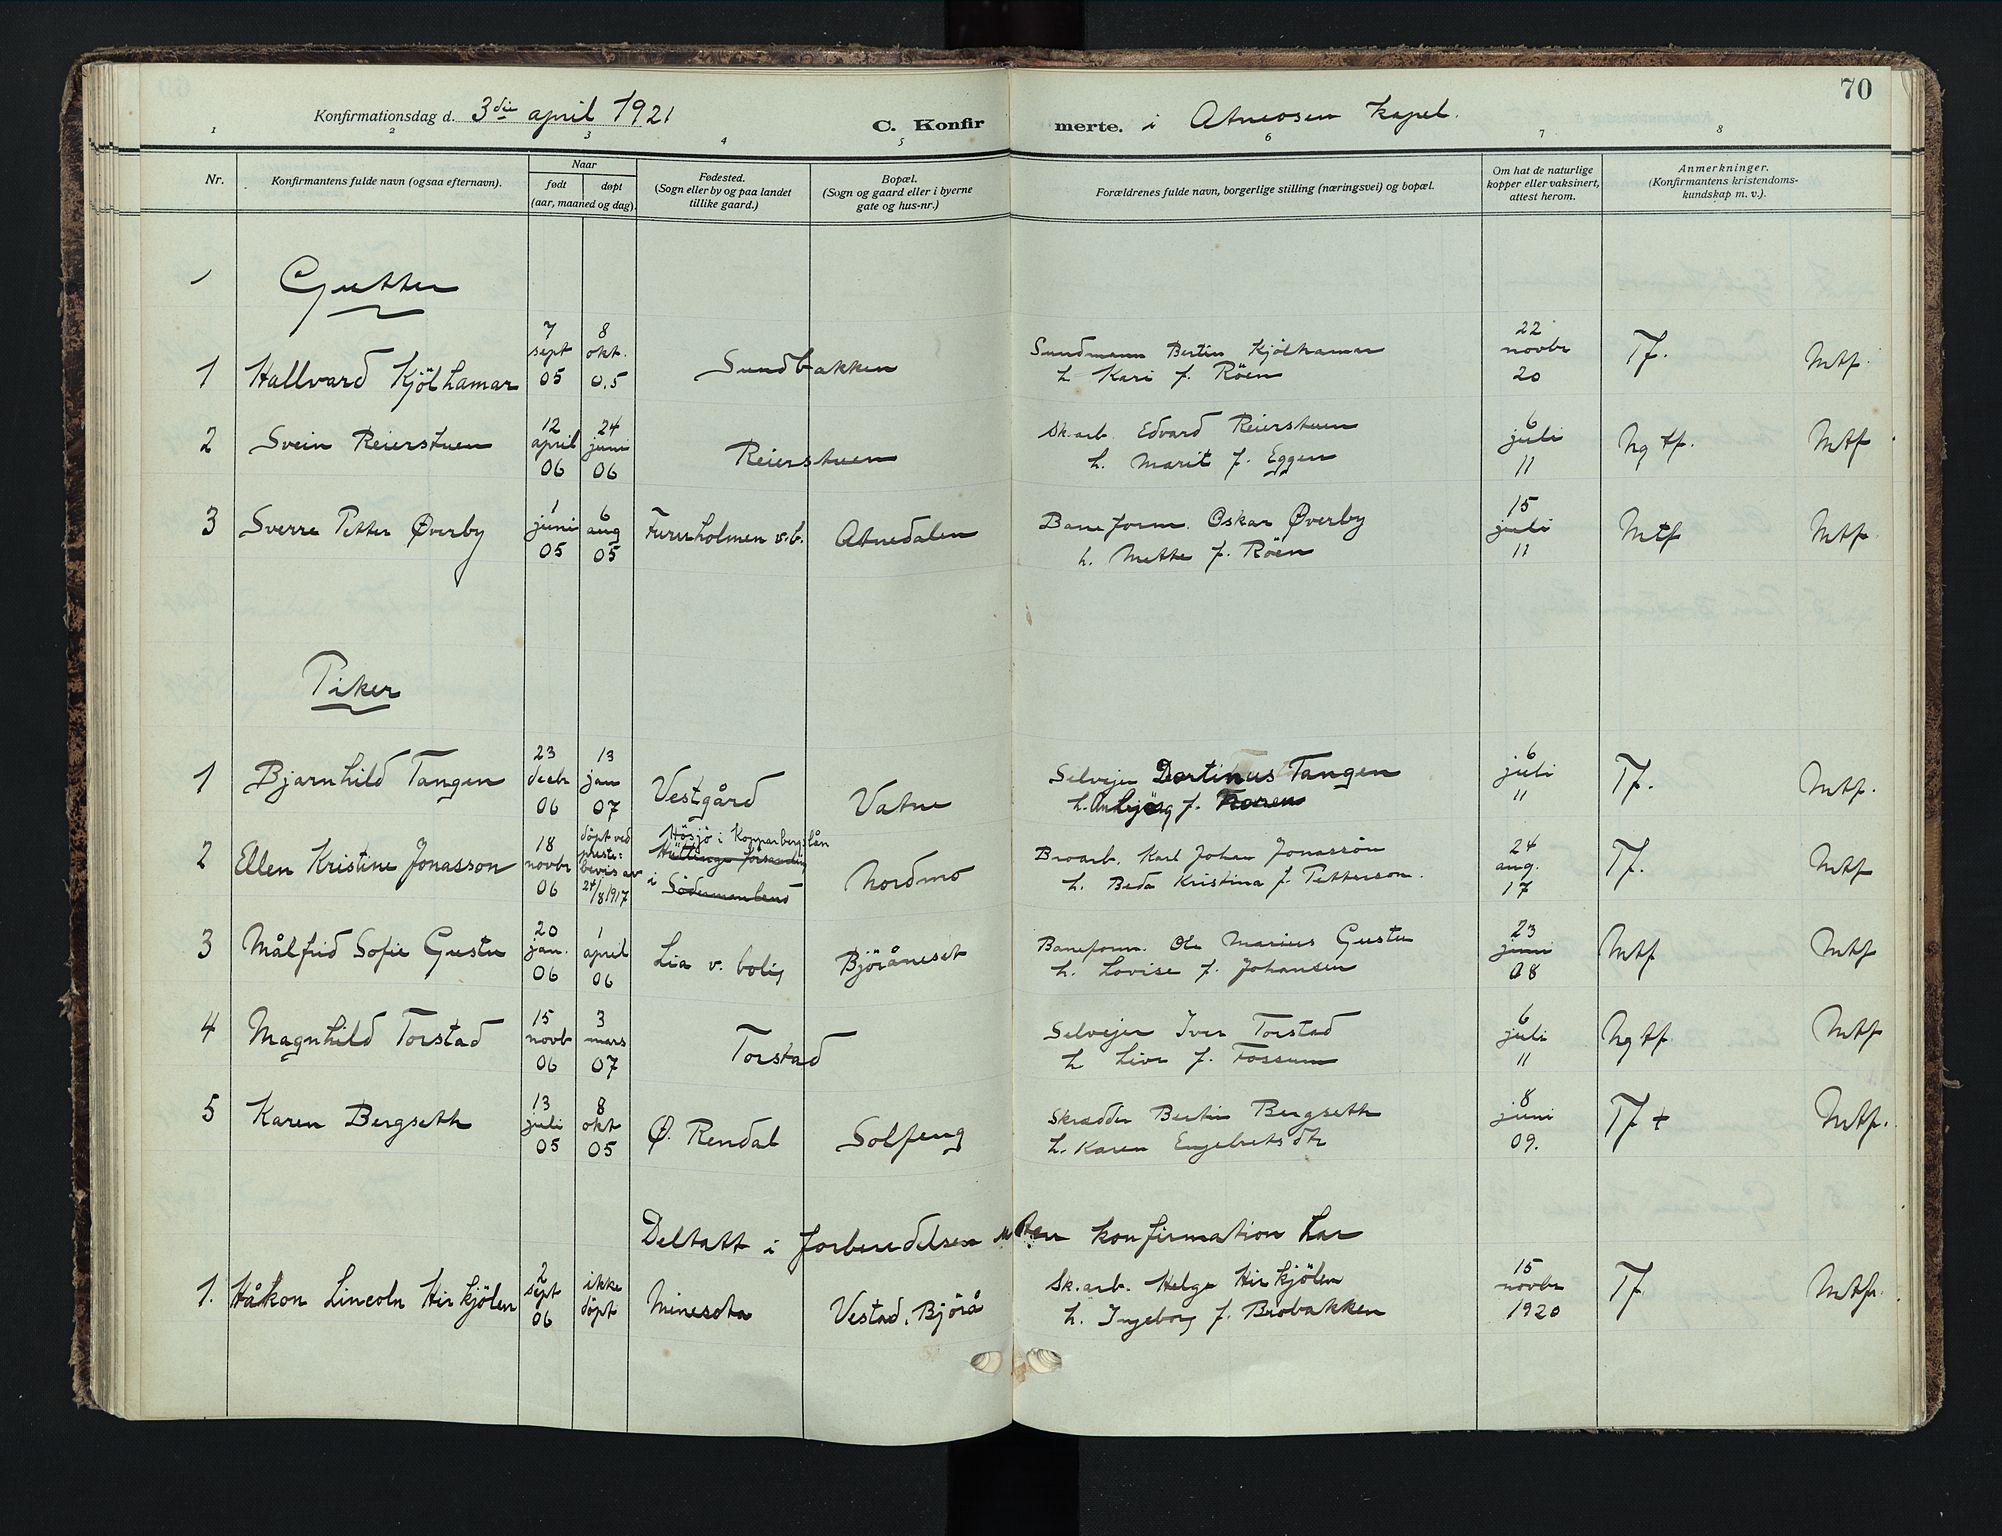 70
Konfirmationsdag d. 3die april 1921 C. Konfirmerte. i Atneosen kapel.
1 2 3 4 5 6 7 8
Nr. Konfirmantens fulde navn (ogsaa efternavn). Naar født døpt (aar, maaned og dag). Fødested. (Sogn eller by og paa landet tillike gaard.) Bopæl. (Sogn og gaard eller i byerne gate og hus-nr.) Forældrenes fulde navn, borgerlige stilling (næringsvei) og bopæl. Om hat de naturlige kopper eller vaksinert, attest herom. Anmerkninger. (Konfirmantens kristendomskundskap m. v.).
Gutter
1 Hallvard Kjölhamar 7 sept 05 8 okt. 05 Sundbakken Sundmann Bertin Kjölhamar h Kari f. Röen 22 novbr 20 Tf. Mtf.
2 Svein Reierstuen 12 april 06 24 juni 06 Reierstuen Sk.arb. Edvard Reierstuen h. Marit f. Eggen 6 juli 11 Ng tf. Mtf
3 Sverre Petter Øverby 1 juni 05 6 aug 05 Furuholmen v.b. Atnedalen Baneform. Oskar Øverby h. Mette f. Röen 15 juli 11 Mtf Mtf.
Piker
1 Bjarnhild Tangen 23 decbr 06 13 jan 07 Vestgård Vatne Selvejer Tangen h. f. 6 juli 11 Tf. Mtf.
2 Ellen Kristine Jonasson 18 novbr 06 döpt ved preste: bevis av 24/8 1917 Hösjö i Kopparbergslän i Södermanland Nordmo Broarb. Karl Johan Jonassön h. Beda Kristina f. Petterson. 24 aug. 17 Tf. Mtf
3 Målfrid Sofie Gustu 20 jan. 06 1 april 06 Lia v. bolig Björåneset Baneform. Ole Marius Gustu h. Lovise f. Johansen 23 juni 08 Mtf Mtf
4 Magnhild Torstad 15 novb 06 3 mars 07 Torstad Selvejer Iver Torstad h Live f. Fossum 6 juli 11 Ng tf Mtf
5 Karen Bergseth 13 juli 05 8 okt 05 Ø. Rendal Solfeng Skrædder Bertin Bergseth h. Karen Engebretsdtr 8 juni 09. Tf + Mtf.
Deltatt i forberedelsen uten konfirmation har
1. Håkon Lincoln Hirkjölen 2 sept 06 ikke döpt Minesota Vestad, Björå Sk.arb. Helge Hirkjölen h. Ingeborg f. Brobakken 15 novbr 1920 Tf Mtf.